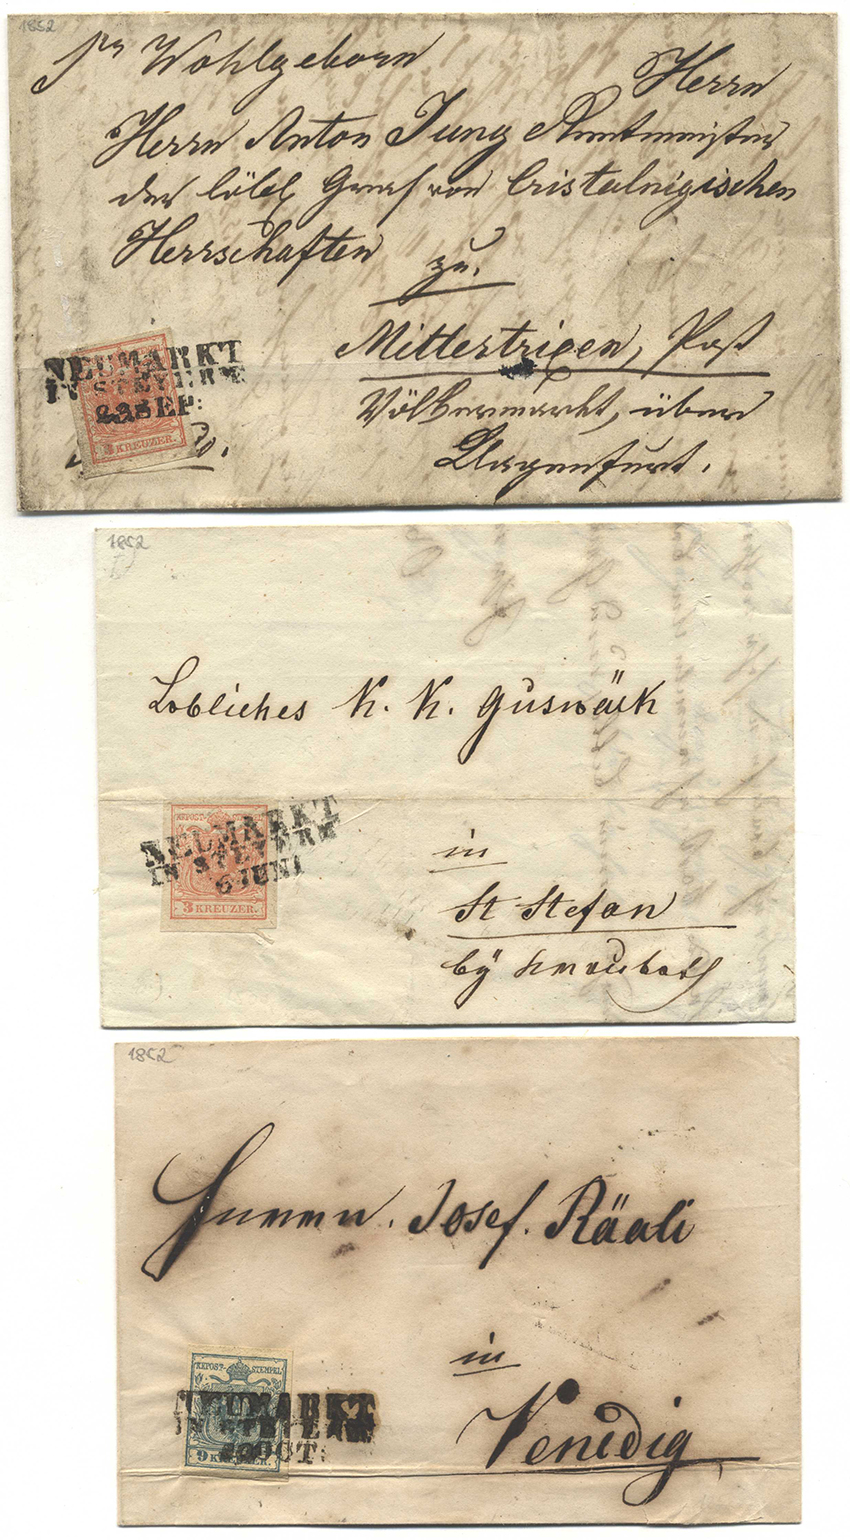 1852
Wohlgeborn
Herrn
Herrn Anton Jung Amtmeister
der löbl Graf von Cristalnigischen
Herrschaften
zu
Mittertrixen, Post
Völkermarkt, über
Klagenfurt.
NEUMARKT
IN STEYERM:
SEP:
KREUZER.
1852
Lobliches K. K. Guswäck
in
St Stefan
by
KKPOST-STEMPEL
NEUMARKT
IN STEYERM
6 JUNI
3 KREUZER.
1852
Herrn. Josef. Räali
in
Venedig
KKPOST-STEMPEL
NEUMARKT
IN STEYERM
OCT:
9 KREUZER.